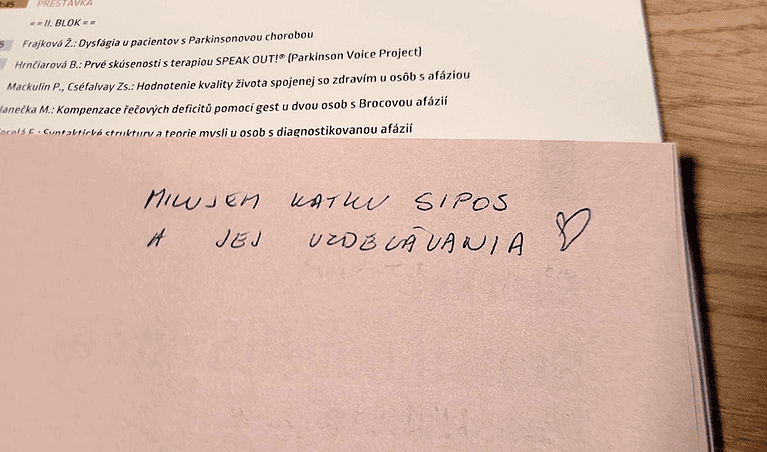 :45 PRESTÁVKA
== II. BLOK ==
Frajková Ž.: Dysfágia u pacientov s Parkinsonovou chorobou
Hrnčiarová B.: Prvé skúsenosti s terapiou SPEAK OUT!® (Parkinson Voice Project)
Mackulin P., Cséfalvay Zs.: Hodnotenie kvality života spojenej so zdravím u osôb s afáziou
M.: Kompenzace řečových deficitů pomocí gest u dvou osob s Brocovou afázií
Syntaktické struktury a teorie mysli u osob s diagnostikovanou afázií
MILUJEM KATKU SIPOS
A JEJ VZDELÁVANIA